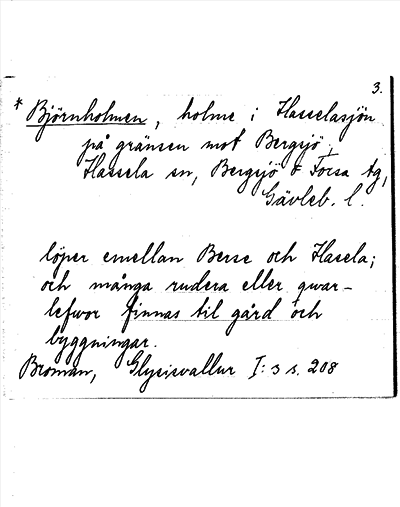 3.
* Björnholmen, holme i Hasselasjön
på gränsen mot Bergsjö,
Hassela sn, Bergsjö o Forsa tg,
Gävleb. l.
löper emellan Berse och Hasela;
och många rudera eller qwar-
lefwor finnas til gård och
byggningar.
Broman, Glysisvallur I: 3 s. 208